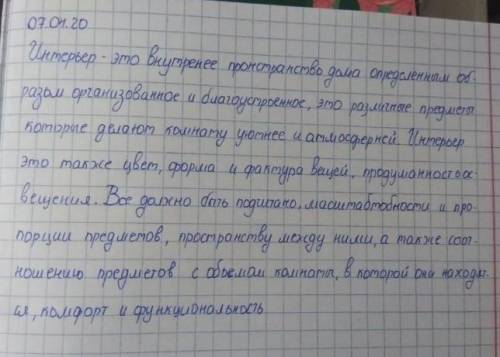 07.04.20
Интерьер - это внутренее пространство дома определенным об-
разом организованное и благоустроенное, это различные предметы
которые делают комнату уютнее и атмосферней. Интерьер
это также цвет, форма и фактура вещей, продуманность ос-
вещения. Все должно быть подчинено, масштабности и про-
порции предметов, пространству между ними, а также соот-
ношению предметов с объемом комнаты, в которой они находят-
ся, комфорт и функциональность